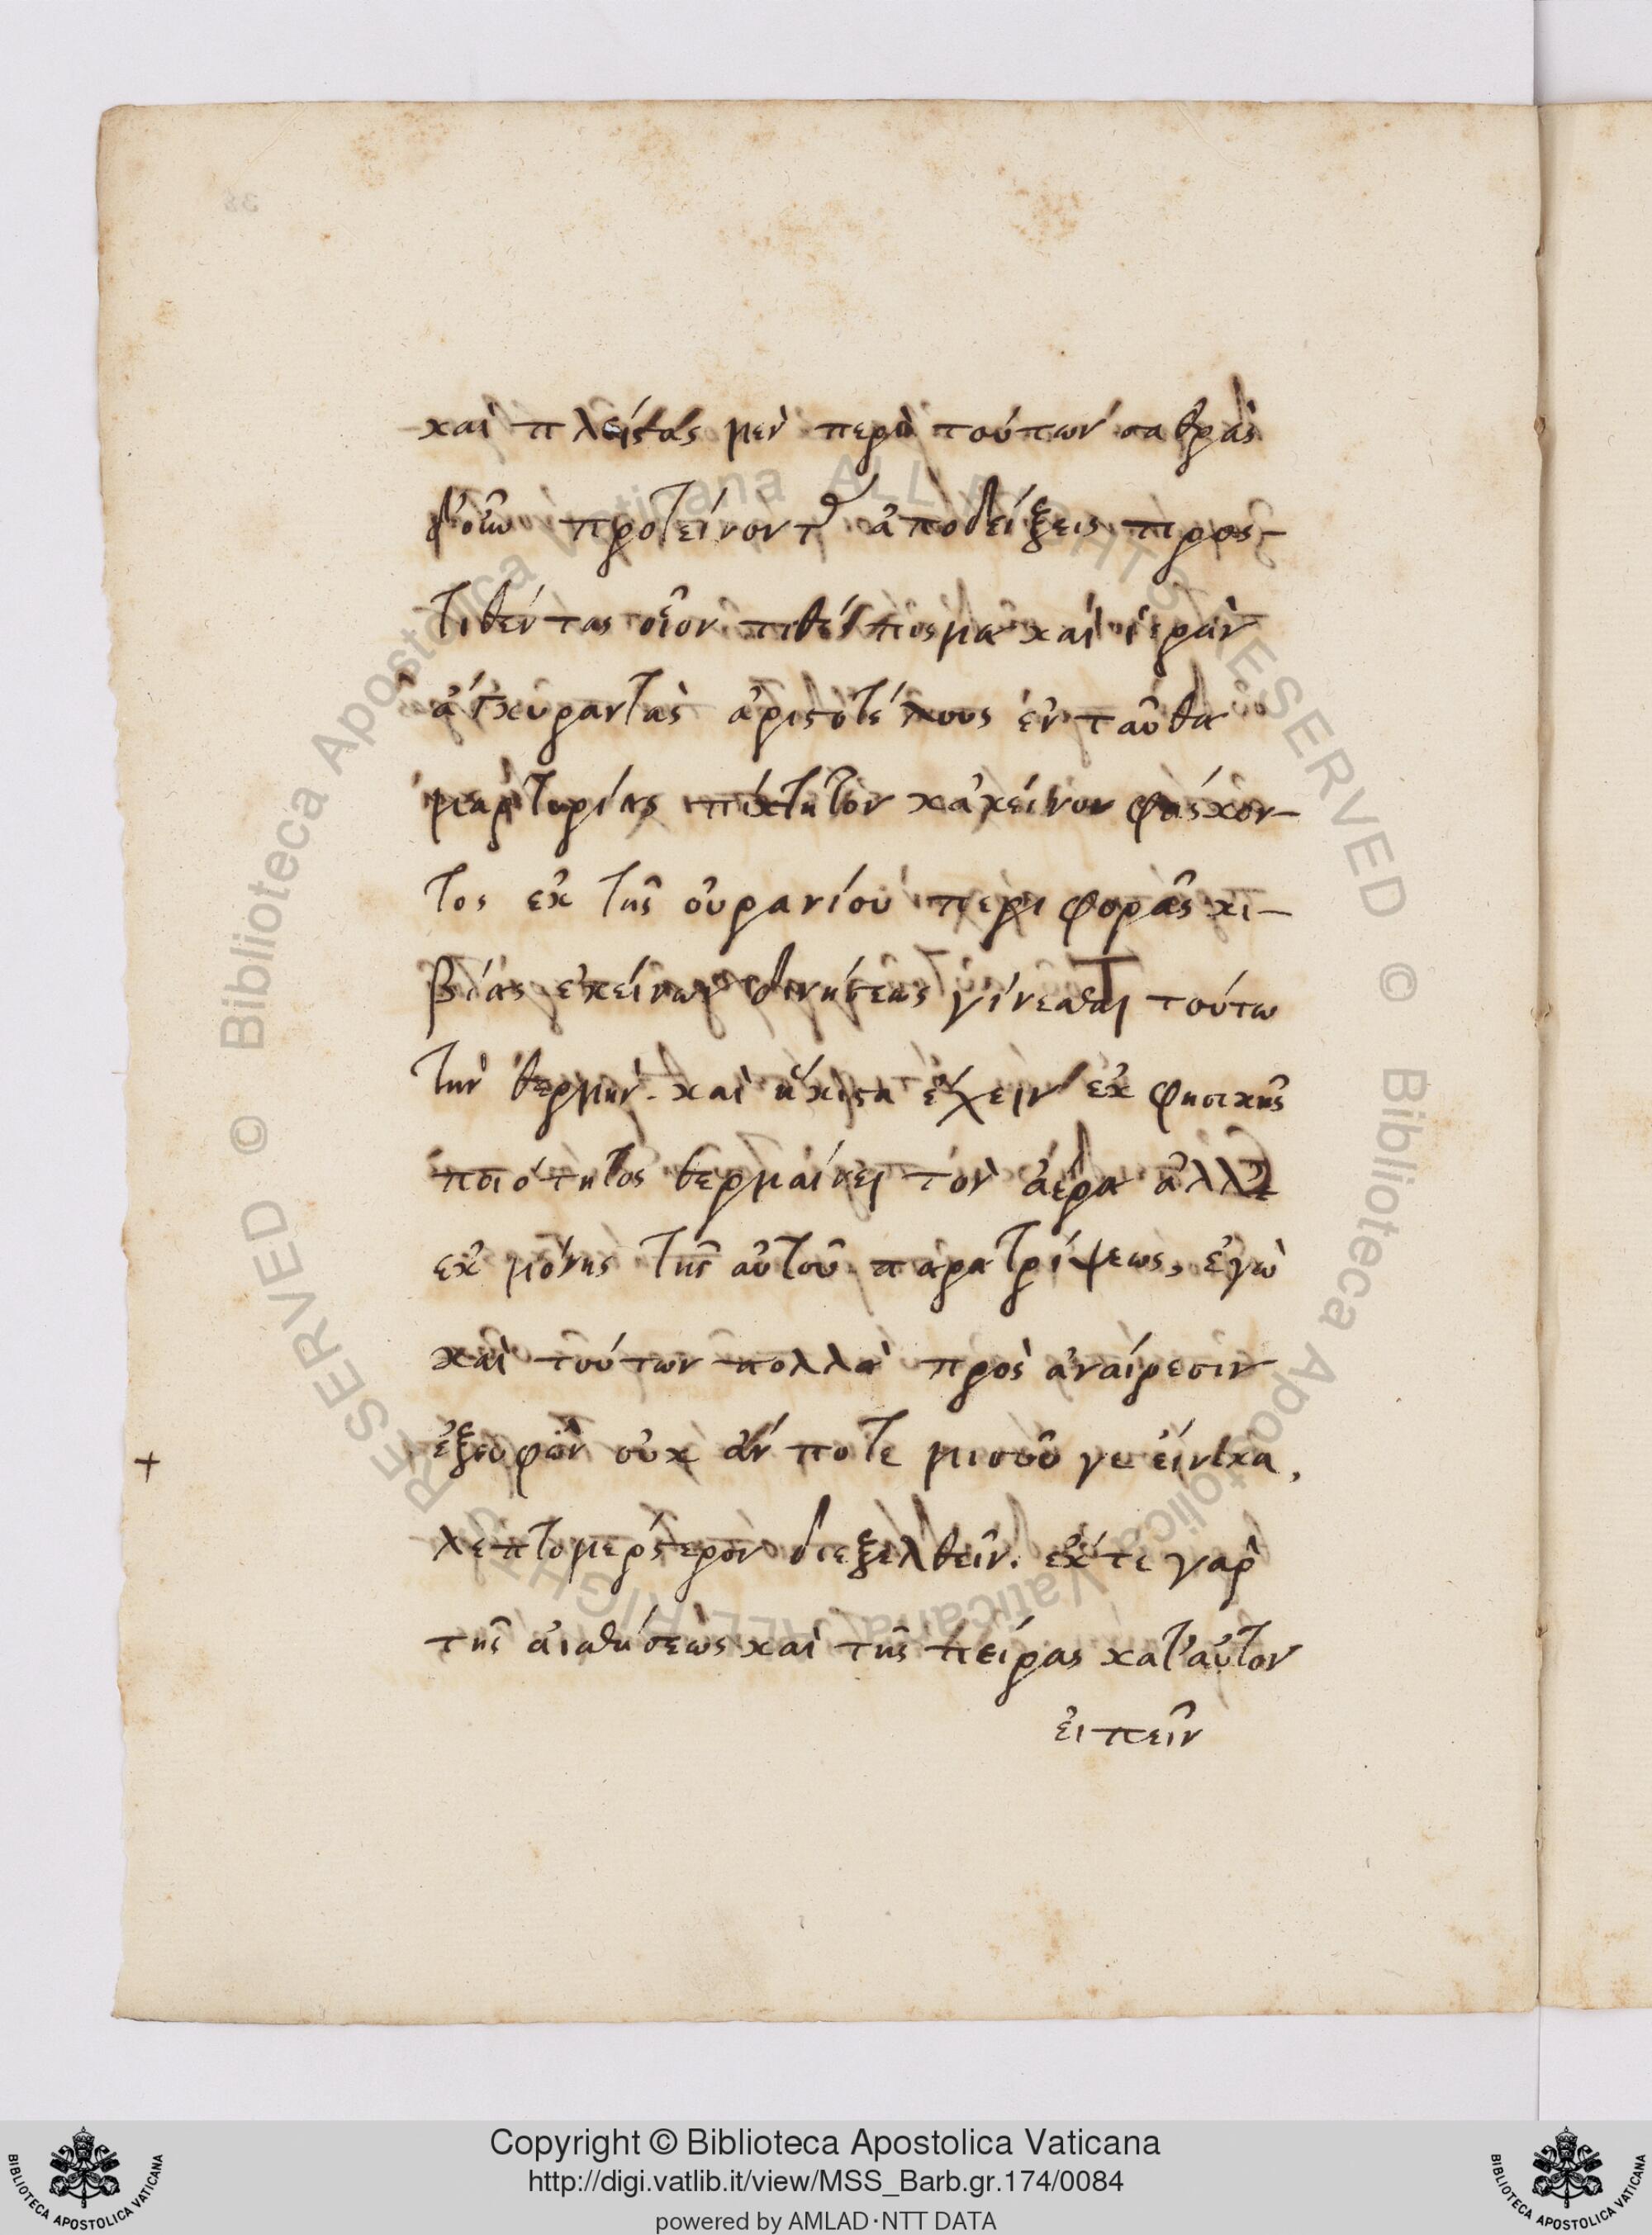 καὶ πλείστας μὲν περὶ τούτων σαθρὰς
δ' οὖν προτείνοντ ἀποδείξεις προσ-
τιθέντας οἷον καὶ ἱερὰν
ἀριστοτέλους ἐνταῦθα
μαρτυρίας κἀκείνου φάσκον-
τος ἐκ τῆς οὐρανίου περιφορᾶς κι-
βίας ἐκείνων δινήσεως γίνεσθαι τούτω
τὴν θερμὴν. καὶ ἥκιστα ἔχειν ἐκ φησικῆς
ποιότητος θερμαίνει τὸν ἀέρα ἀλλ
ἐκ μόνης τῆς αὐτοῦ παρατρίψεως, ἐγὼ
καὶ τούτων πολλὰ πρὸς ἀναίρεσιν
ἐξευρὼν οὐκ ἄν ποτε μισοῦ γε εἵνεκα,
λεπτομερέστερον διεξελθεῖν. ἐκ τε γὰρ
τῆς αἰσθήσεως καὶ τῆς πείρας κατ' αὐτὸν
εἰπεῖν
+
Copyright © Biblioteca Apostolica Vaticana
http://digi.vatlib.it/view/MSS_Barb.gr.174/0084
powered by AMLAD·NTT DATA
BIBLIOTECA APOSTOLICA VATICANA
BIBLIOTECA APOSTOLICA VATICANA
© Biblioteca Apostolica Vaticana ALL RIGHTS RESERVED
© Biblioteca Apostolica Vaticana ALL RIGHTS RESERVED